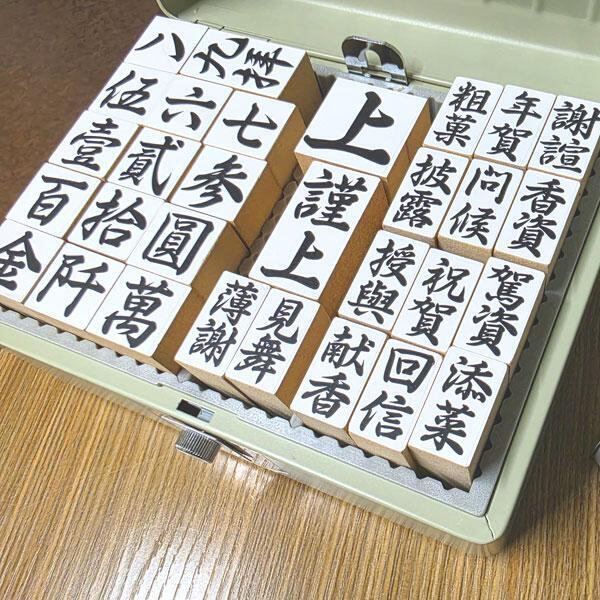 八
九
様
伍
六
七
壹
貳
参
百
拾
圓
金
阡
萬
上
謹上
薄謝
見舞
粗菓
年賀
謝誼
披露
問候
香資
授與
祝賀
駕資
献香
回信
添菜